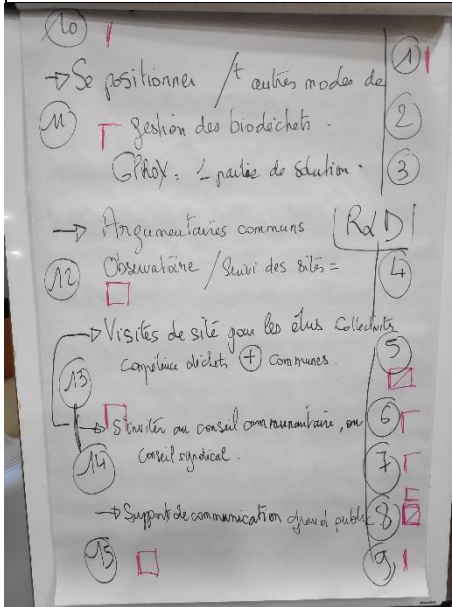 10
1
→ Se positionner / t autres modes de
11
gestion des biodéchets.
2
GPROX = 1 partie de solution.
3
→ Argumentaires communs
R&D
Observatoire / Suivi des sités =
4
12
→ Visites de site pour les élus Collectivités
compétence déchets + communes.
5
13
→ S'inviter au conseil communautaire, ou
6
Conseil syndical.
14
7
→ Support de communication grand public
8
15
9